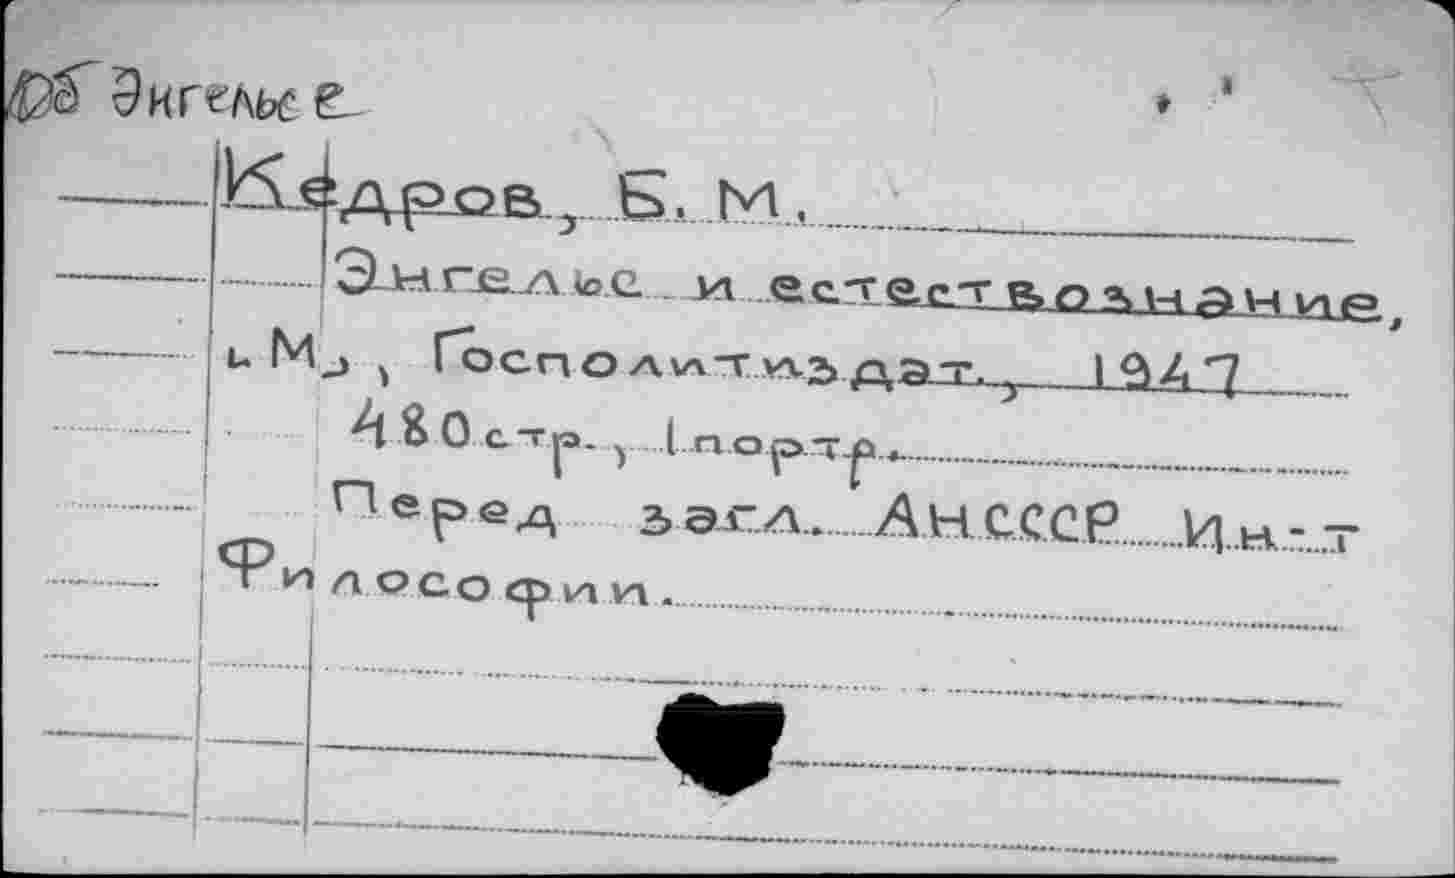 Об Энгельсе
Кедров, Б. М.
Энгельс и естествознание,
М., Госполитиздат, 1947
480 стр., 1 портр.
Перед загл. АН СССР Ин-т
Философии.